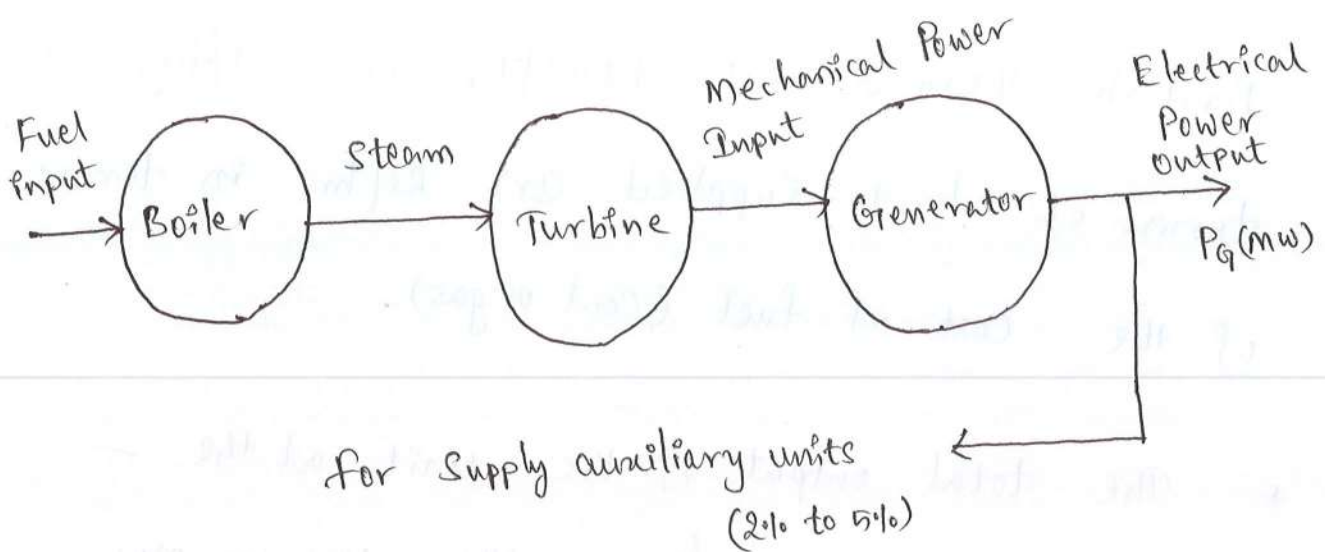 Fuel
input
Boiler
Steam
Turbine
Mechanical Power
Input
Generator
Electrical
Power
output
PG (MW)
for supply auxiliary units
(2% to 5%)